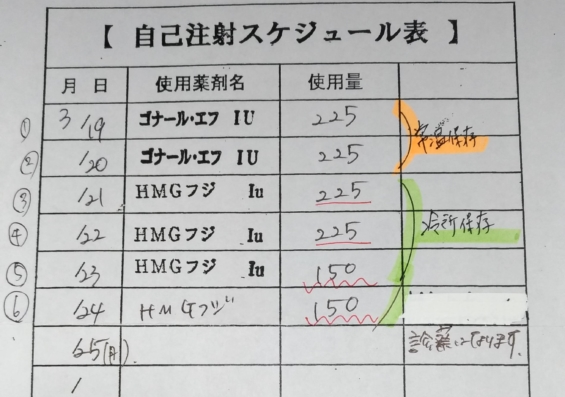 【 自己注射スケジュール表 】
月 日 使用薬剤名 使用量
① 3/19 ゴナール・エフ IU 225 常温保存
② /20 ゴナール・エフ IU 225
③ /21 HMGフジ Iu 225
④ /22 HMGフジ Iu 225 冷所保存
⑤ /23 HMGフジ Iu 150
⑥ /24 HMGフジ 150
/25(月) になります
/